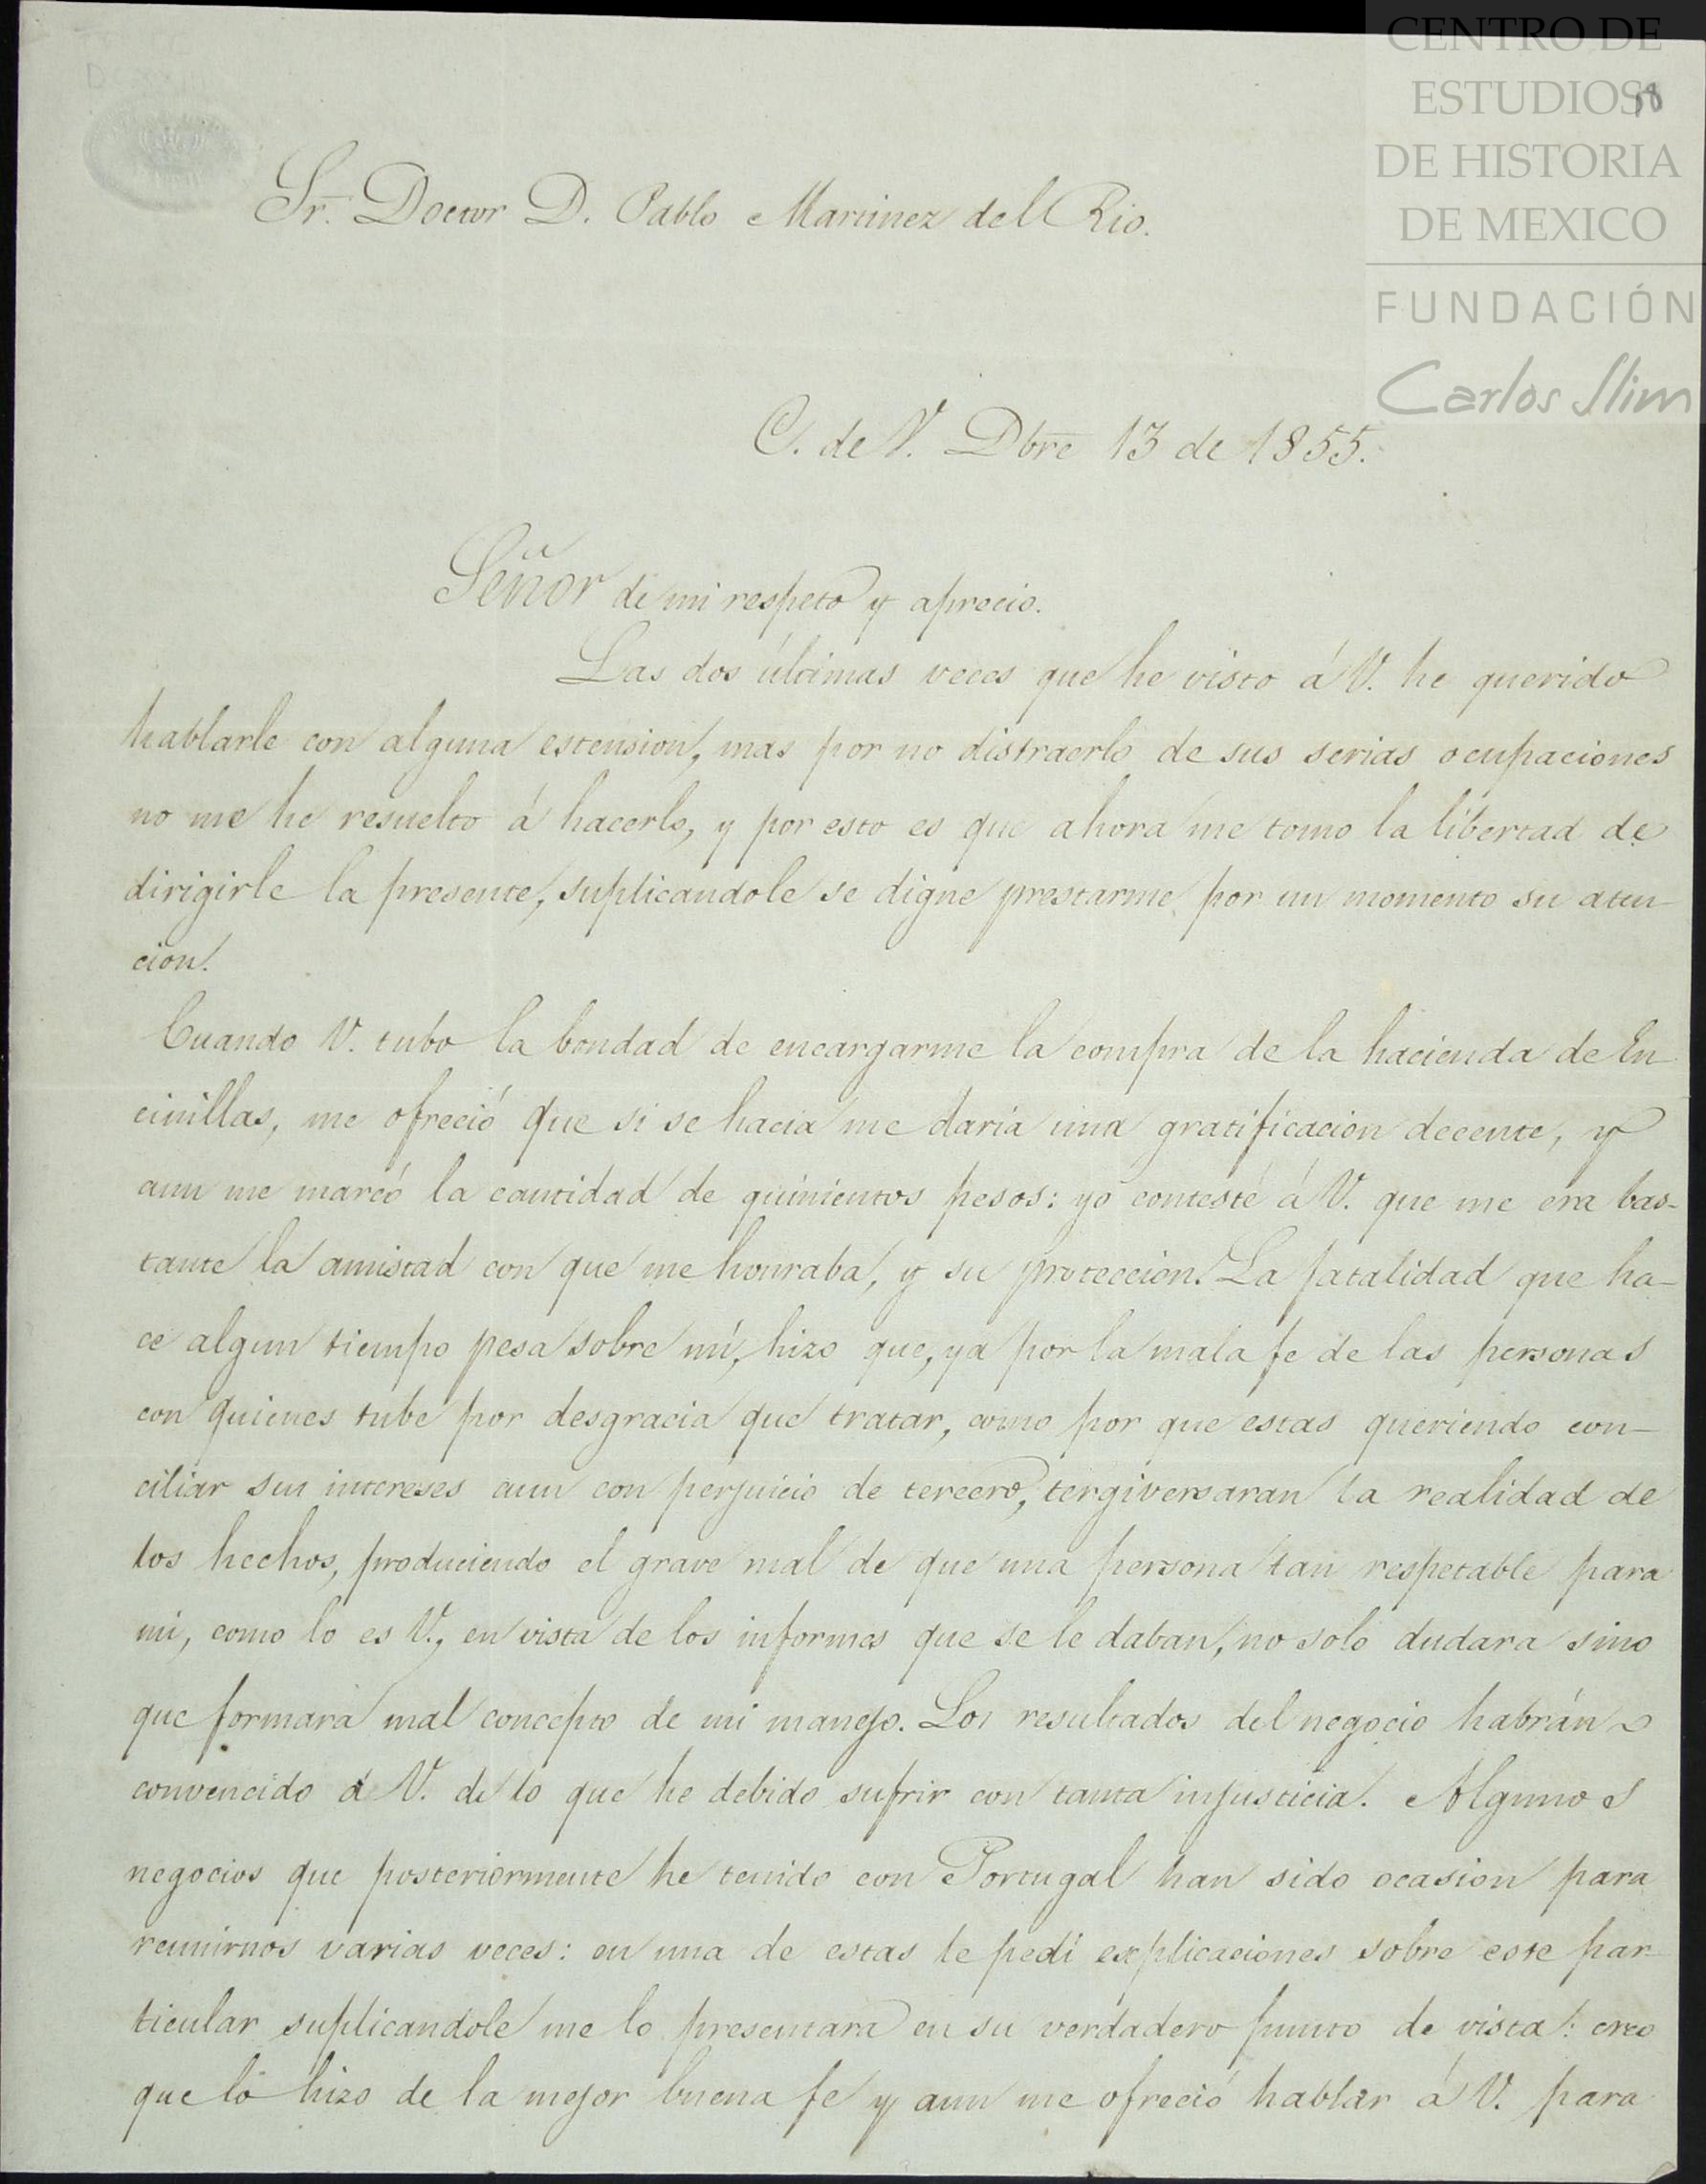 CENTRO DE
ESTUDIOS
DE HISTORIA
DE MEXICO
FUNDACIÓN
Carlos Slim
18
Sr. Doctor D. Pablo Martinez del Rio.
C. de V. Dbre 13 de 1855.
Señor de mi respeto y aprecio.
Las dos últimas veces que he visto á V. he querido
hablarle con alguna estension, mas por no distraerlo de sus serias ocupaciones
no me he resuelto á hacerlo, y por esto es que ahora me tomo la libertad de
dirigirle la presente, suplicandole se digne prestarme por un momento su aten-
cion.
Cuando V. tubo la bondad de encargarme la compra de la hacienda de En-
cinillas, me ofreció que si se hacia me daria una gratificacion decente, y
aun me marcó la cantidad de quinientos pesos: yo contesté á V. que me era bas-
tante la amistad con que me honraba, y su proteccion. La fatalidad que ha-
ce algun tiempo pesa sobre mí, hizo que, ya por la mala fe de las personas
con quienes tube por desgracia que tratar, como por que estas queriendo con-
ciliar sus intereses aun con perjuicio de tercero, tergiversaran la realidad de
los hechos, produciendo el grave mal de que una persona tan respetable para
mi, como lo es V., en vista de los informes que se le daban, no solo dudara sino
que formara mal concepto de mi manejo. Los resultados del negocio habrán
convencido á V. de lo que he debido sufrir con tanta injusticia. Algunos
negocios que posteriormente he tenido con Portugal han sido ocasion para
reunirnos varias veces: en una de estas le pedí explicaciones sobre este par-
ticular suplicandole me lo presentara en su verdadero punto de vista: creo
que lo hizo de la mejor buena fe y aun me ofreció hablar á V. para